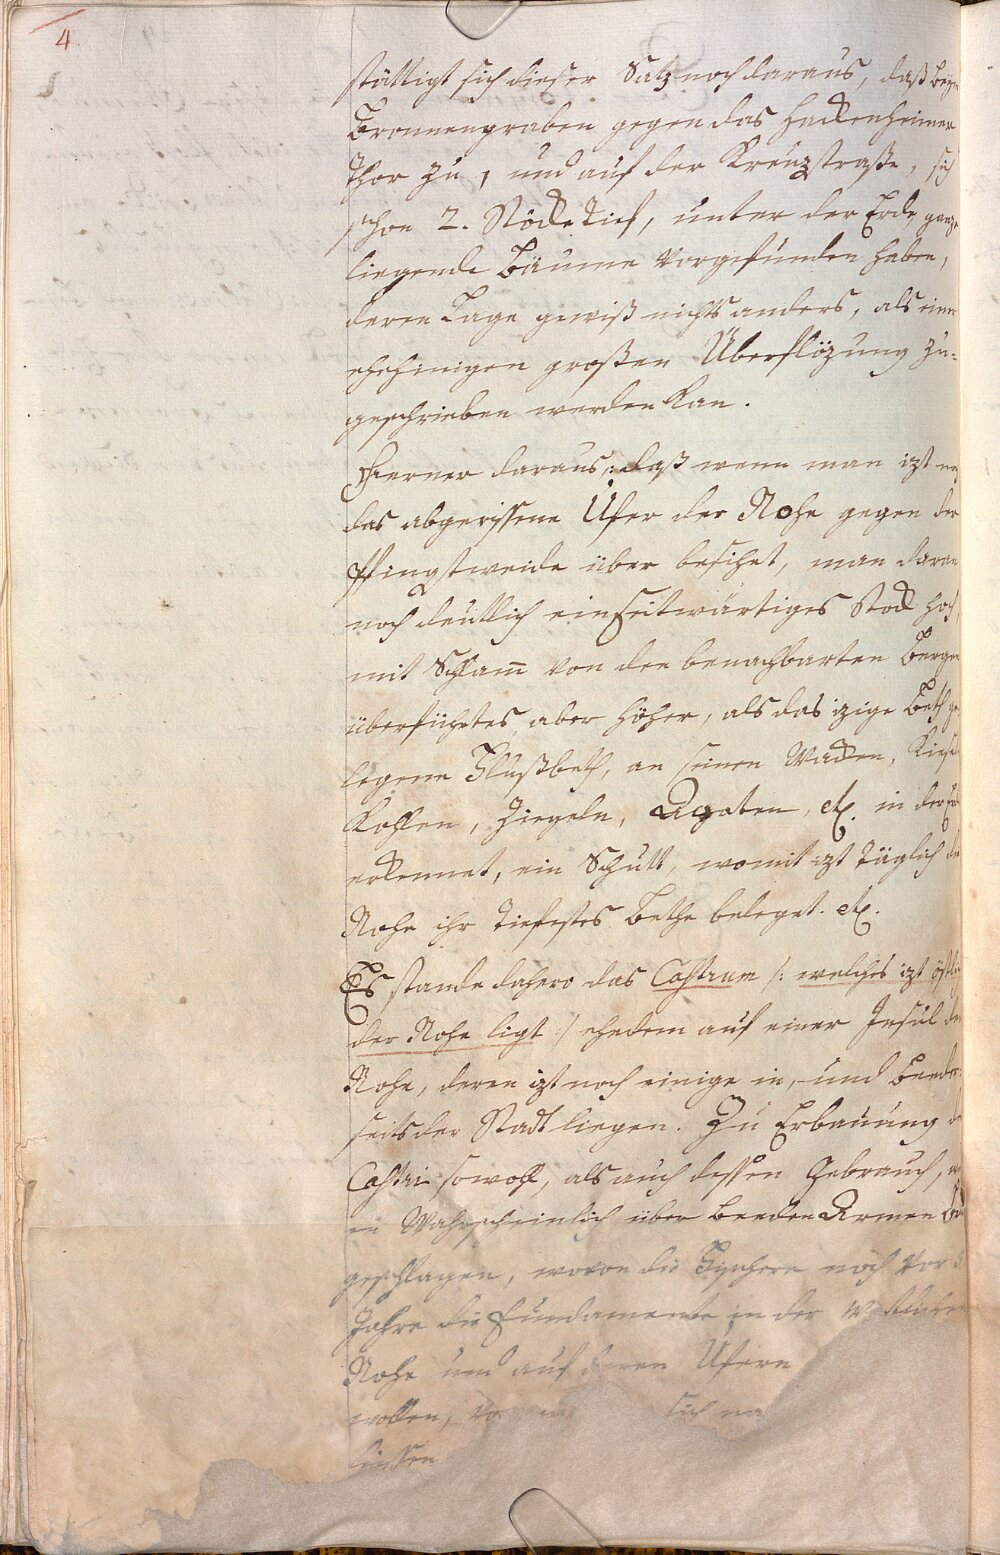 4
stättigt sich dieser Satz noch daraus, daß beym
Bronnengraben gegen das Hackenheimer
Thor zu, und auf der Kreuzstraße, sich
schon 2. Stöcke Tief, unter der Erde, ganze
liegende Bäume vorgefunden haben,
deren Lage gewiß nichts anders, als einer
ehehinigen großen Überflözung zu-
geschrieben werden kan.
Fferner daraus: daß wenn man izt
das abgerissene Ufer der Nohe gegen der
Pfingstweide über besihet, man daran
noch deutlich ein seitwärtiges Stock hoch,
mit Schlam̅ von den benachbarten Bergen
überführtes, aber höher, als das izige Beth ge-
legene Flußbeth, an seinen Wacken, Kiesel
Kohlen, Ziegeln, Agaten, etc. in der
erkennet, ein Schutt, womit izt täglich die
Nohe ihr Tiefestes Bethe beleget. etc.
Es stande dahero das Castrum /: welches izt östlich
der Nohe ligt :/ ehedem auf einer Insul der
Nohe, deren izt noch einige in, und beeder-
seits der Stadt liegen. Zu Erbauung des
Castri sowohl, als auch dessen Gebrauch,
en Wahrscheinlich über beeden Armen
geschlagen, wovon die Fischere noch vor
Jahre die Fundamente in der
Nohe und auf denen Ufern
wollen, sich